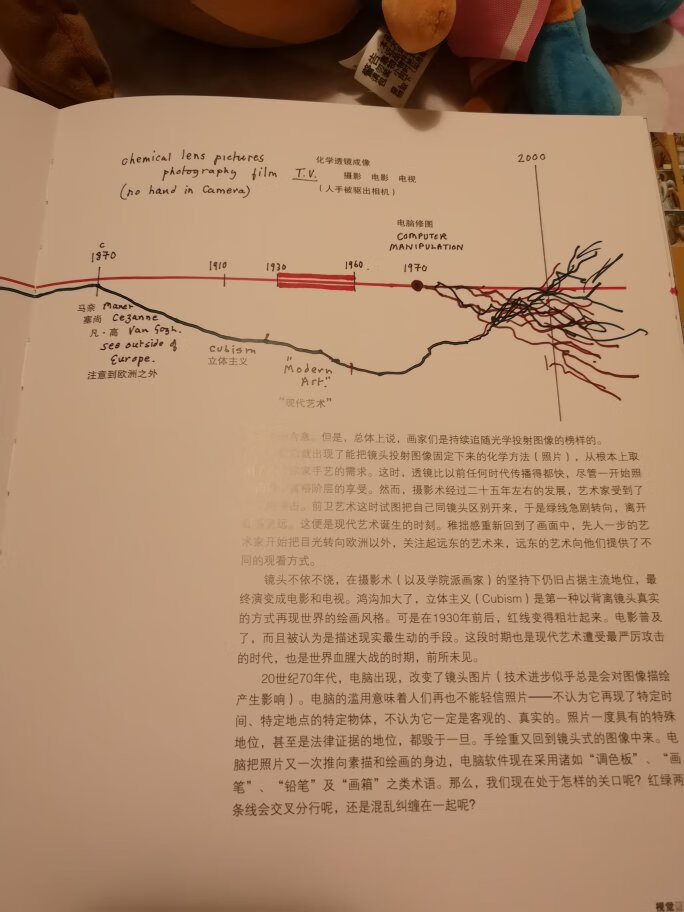 chemical lens pictures
化学透镜成像
photography film T.V.
摄影 电影 电视
(no hand in camera)
(人手被驱出相机)
2000
电脑修图
COMPUTER
MANIPULATION
c
1870
1910
1930
1960.
1970
马奈 Manet
塞尚 Cezanne
凡·高 Van Gogh.
see outside of
Europe.
注意到欧洲之外
cubism
立体主义
"Modern
Art."
“现代艺术”
但是，总体上说，画家们是持续追随光学投射图像的榜样的。
出现了能把镜头投射图像固定下来的化学方法（照片），从根本上取
家手艺的需求。这时，透镜比以前任何时代传播得都快，尽管一开始照
阶层的享受。然而，摄影术经过二十五年左右的发展，艺术家受到了
击。前卫艺术这时试图把自己同镜头区别开来，于是绿线急剧转向，离开
远。这便是现代艺术诞生的时刻。稚拙感重新回到了画面中，先人一步的艺
术家开始把目光转向欧洲以外，关注起远东的艺术来，远东的艺术向他们提供了不
同的观看方式。
镜头不依不饶，在摄影术（以及学院派画家）的坚持下仍旧占据主流地位，最
终演变成电影和电视。鸿沟加大了，立体主义（Cubism）是第一种以背离镜头真实
的方式再现世界的绘画风格。可是在1930年前后，红线变得粗壮起来。电影普及
了，而且被认为是描述现实最生动的手段。这段时期也是现代艺术遭受最严厉攻击
的时代，也是世界血腥大战的时期，前所未见。
20世纪70年代，电脑出现，改变了镜头图片（技术进步似乎总是会对图像描绘
产生影响）。电脑的滥用意味着人们再也不能轻信照片——不认为它再现了特定时
间、特定地点的特定物体，不认为它一定是客观的、真实的。照片一度具有的特殊
地位，甚至是法律证据的地位，都毁于一旦。手绘重又回到镜头式的图像中来。电
脑把照片又一次推向素描和绘画的身边，电脑软件现在采用诸如“调色板”、“画
笔”、“铅笔”及“画箱”之类术语。那么，我们现在处于怎样的关口呢？红绿两
条线会交叉分行呢，还是混乱纠缠在一起呢？
视觉